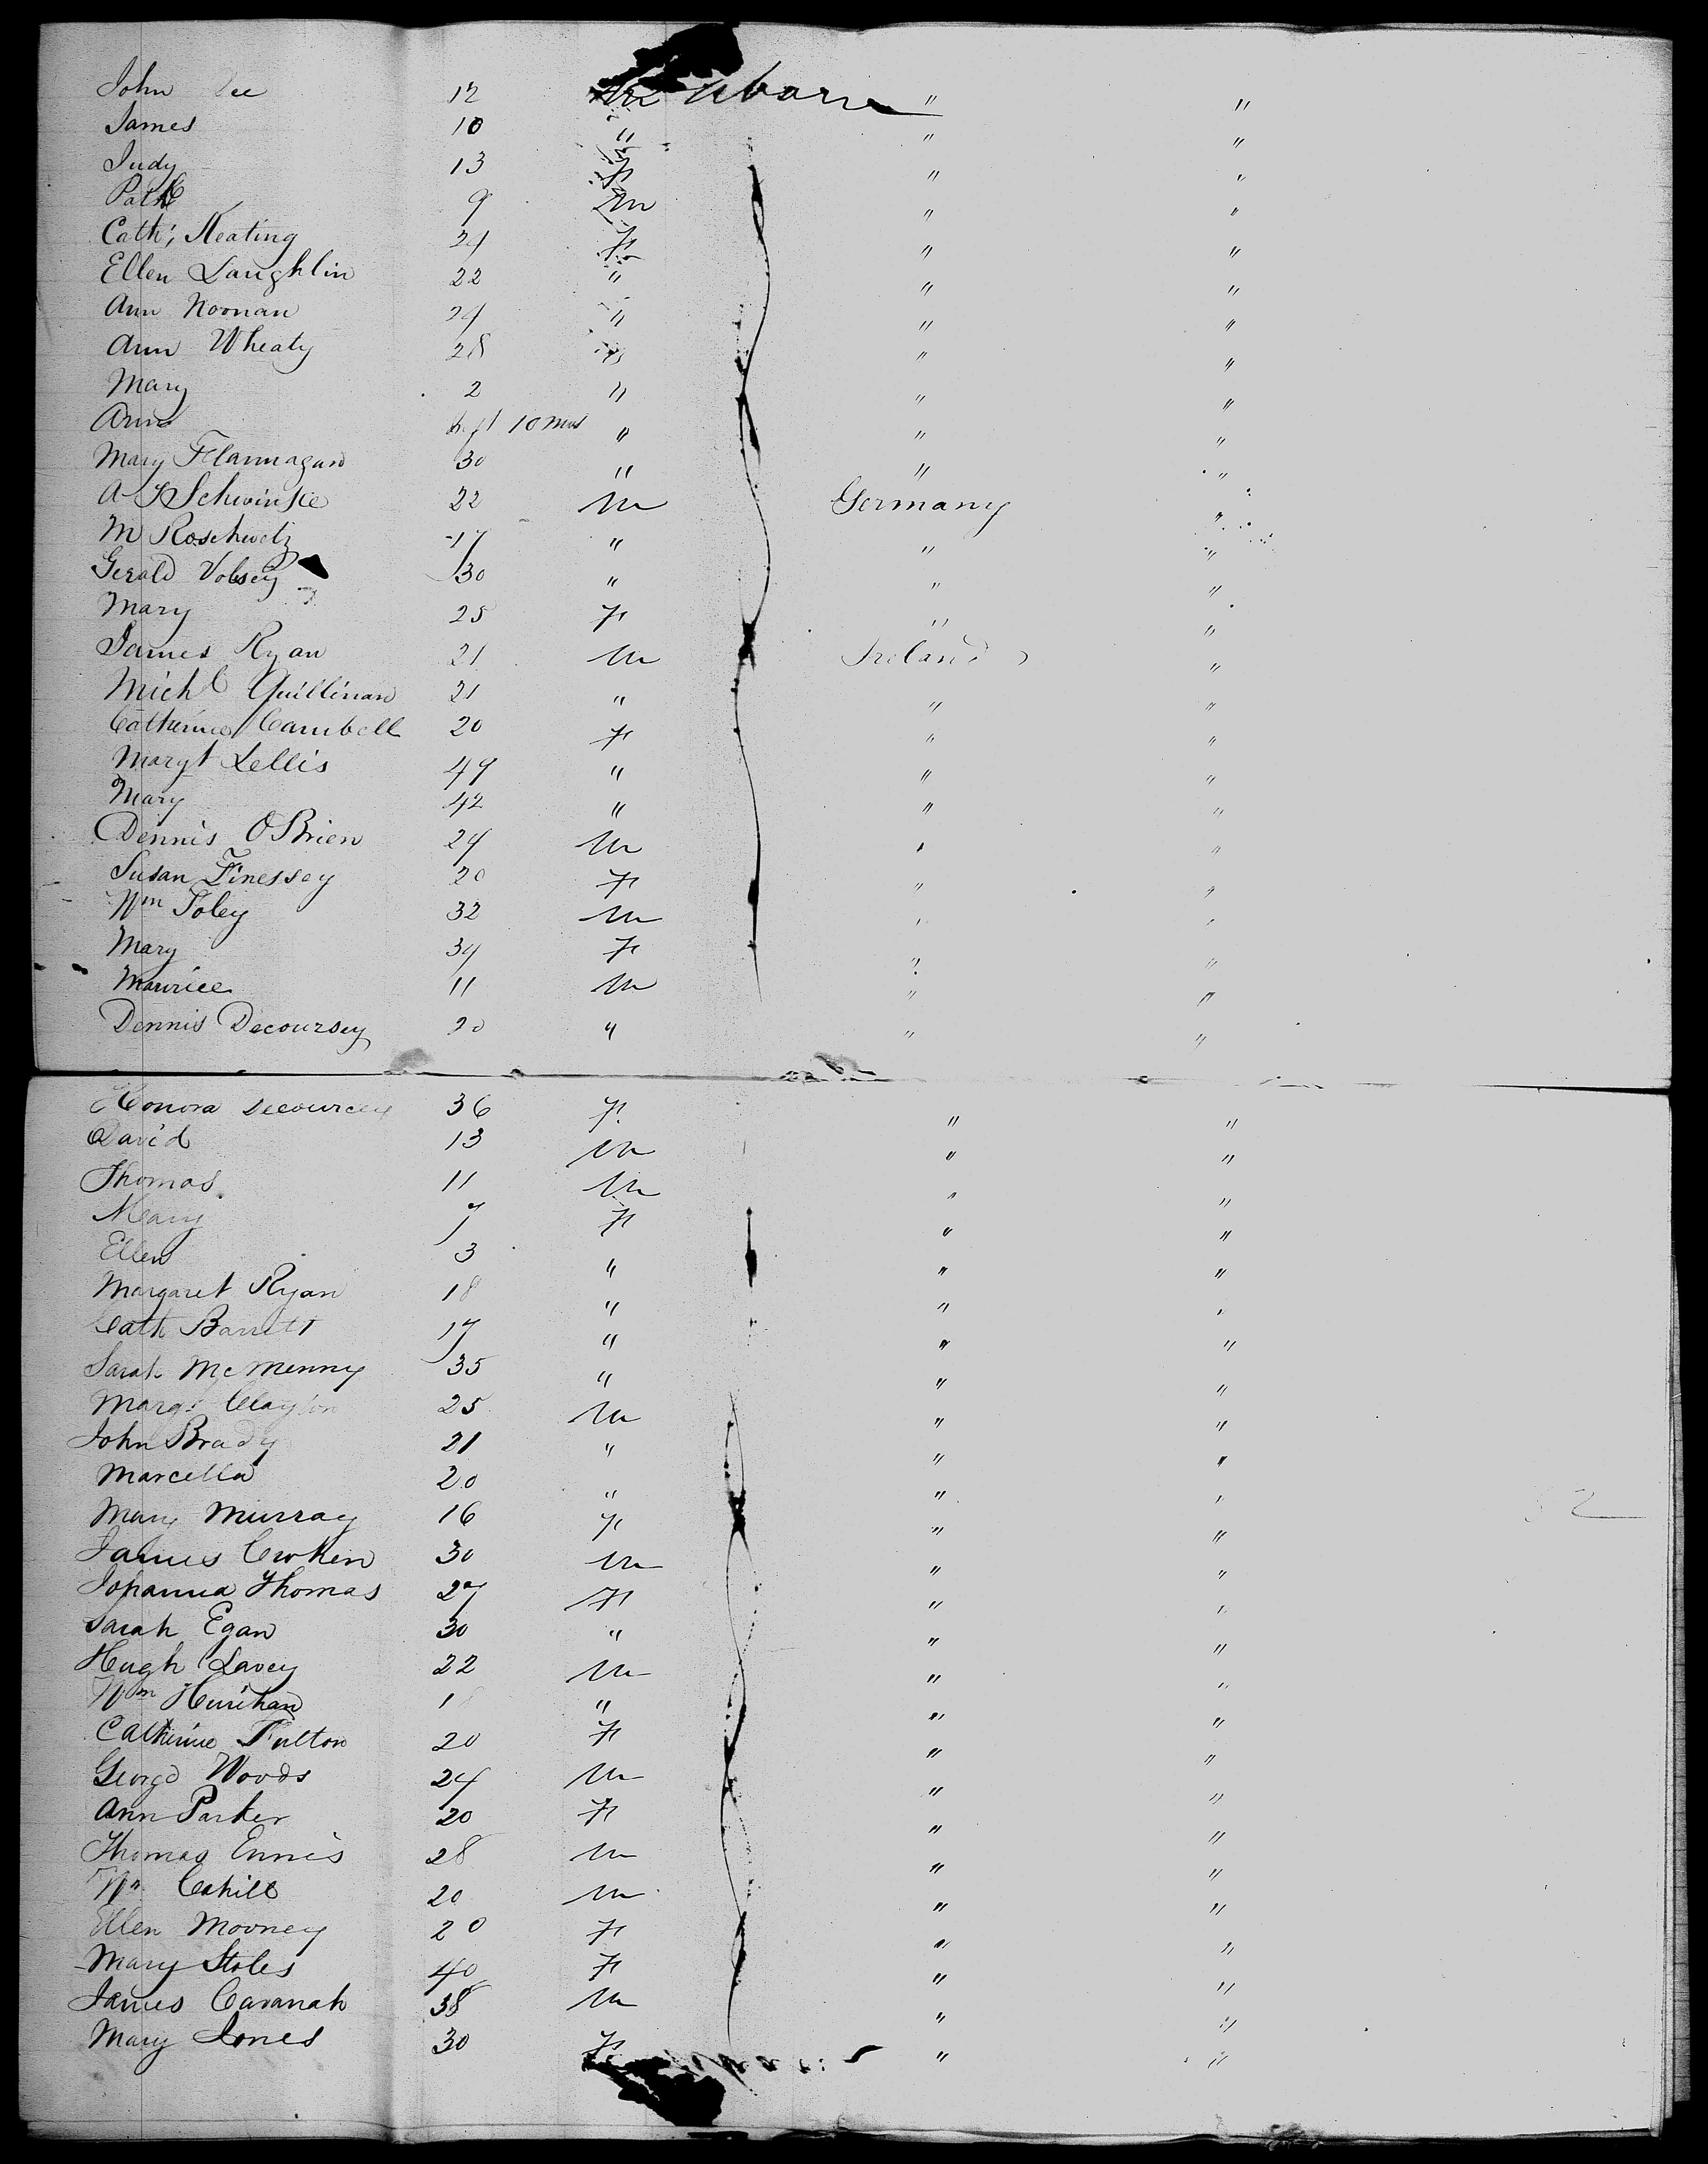 John Lee 12 M Laborer " "
James 10 " " "
Judy 13 F " "
Patk 9 M " "
Cath; Keating 24 F " "
Ellen Laughlin 22 " " "
Ann Noonan 24 " " "
Ann Wheaty 28 " " "
Mary 2 " " "
Ann 10 mos " " "
Mary Flannagan 30 " " "
A Schwinske 22 M Germany "
M Roschwetz 17 " " "
Gerald Volsey 30 " " "
Mary 25 F " "
James Ryan 21 M Ireland "
Michl Quillinan 21 " " "
Catherine Cambell 20 F " "
Margt Lellis 49 " " "
Mary 42 " " "
Dennis OBrien 24 M " "
Susan Finessey 20 F " "
Wm Foley 32 M " "
Mary 34 F " "
Maurice 11 M " "
Dennis Decoursey 20 " " "
Honora Decourcey 36 F " "
David 13 M " "
Thomas 11 M " "
Mary 7 F " "
Ellen 3 " " "
Margaret Ryan 18 " " "
Cath Barrett 17 " " "
Sarah McMenny 35 " " "
Margt Clayton 25 M " "
John Brady 21 " " "
Marcella 20 " " "
Mary Murray 16 F " "
James Croken 30 M " "
Johanna Thomas 27 F " "
Sarah Egan 30 " " "
Hugh Lavey 22 M " "
Wm Hurihan 18 " " "
Catherine Fulton 20 F " "
George Woods 24 M " "
Ann Parker 20 F " "
Thomas Ennis 28 M " "
Wm Cahill 20 M " "
Ellen Mooney 20 F " "
Mary Stoles 40 F " "
James Cavanah 38 M " "
Mary Jones 30 F " "